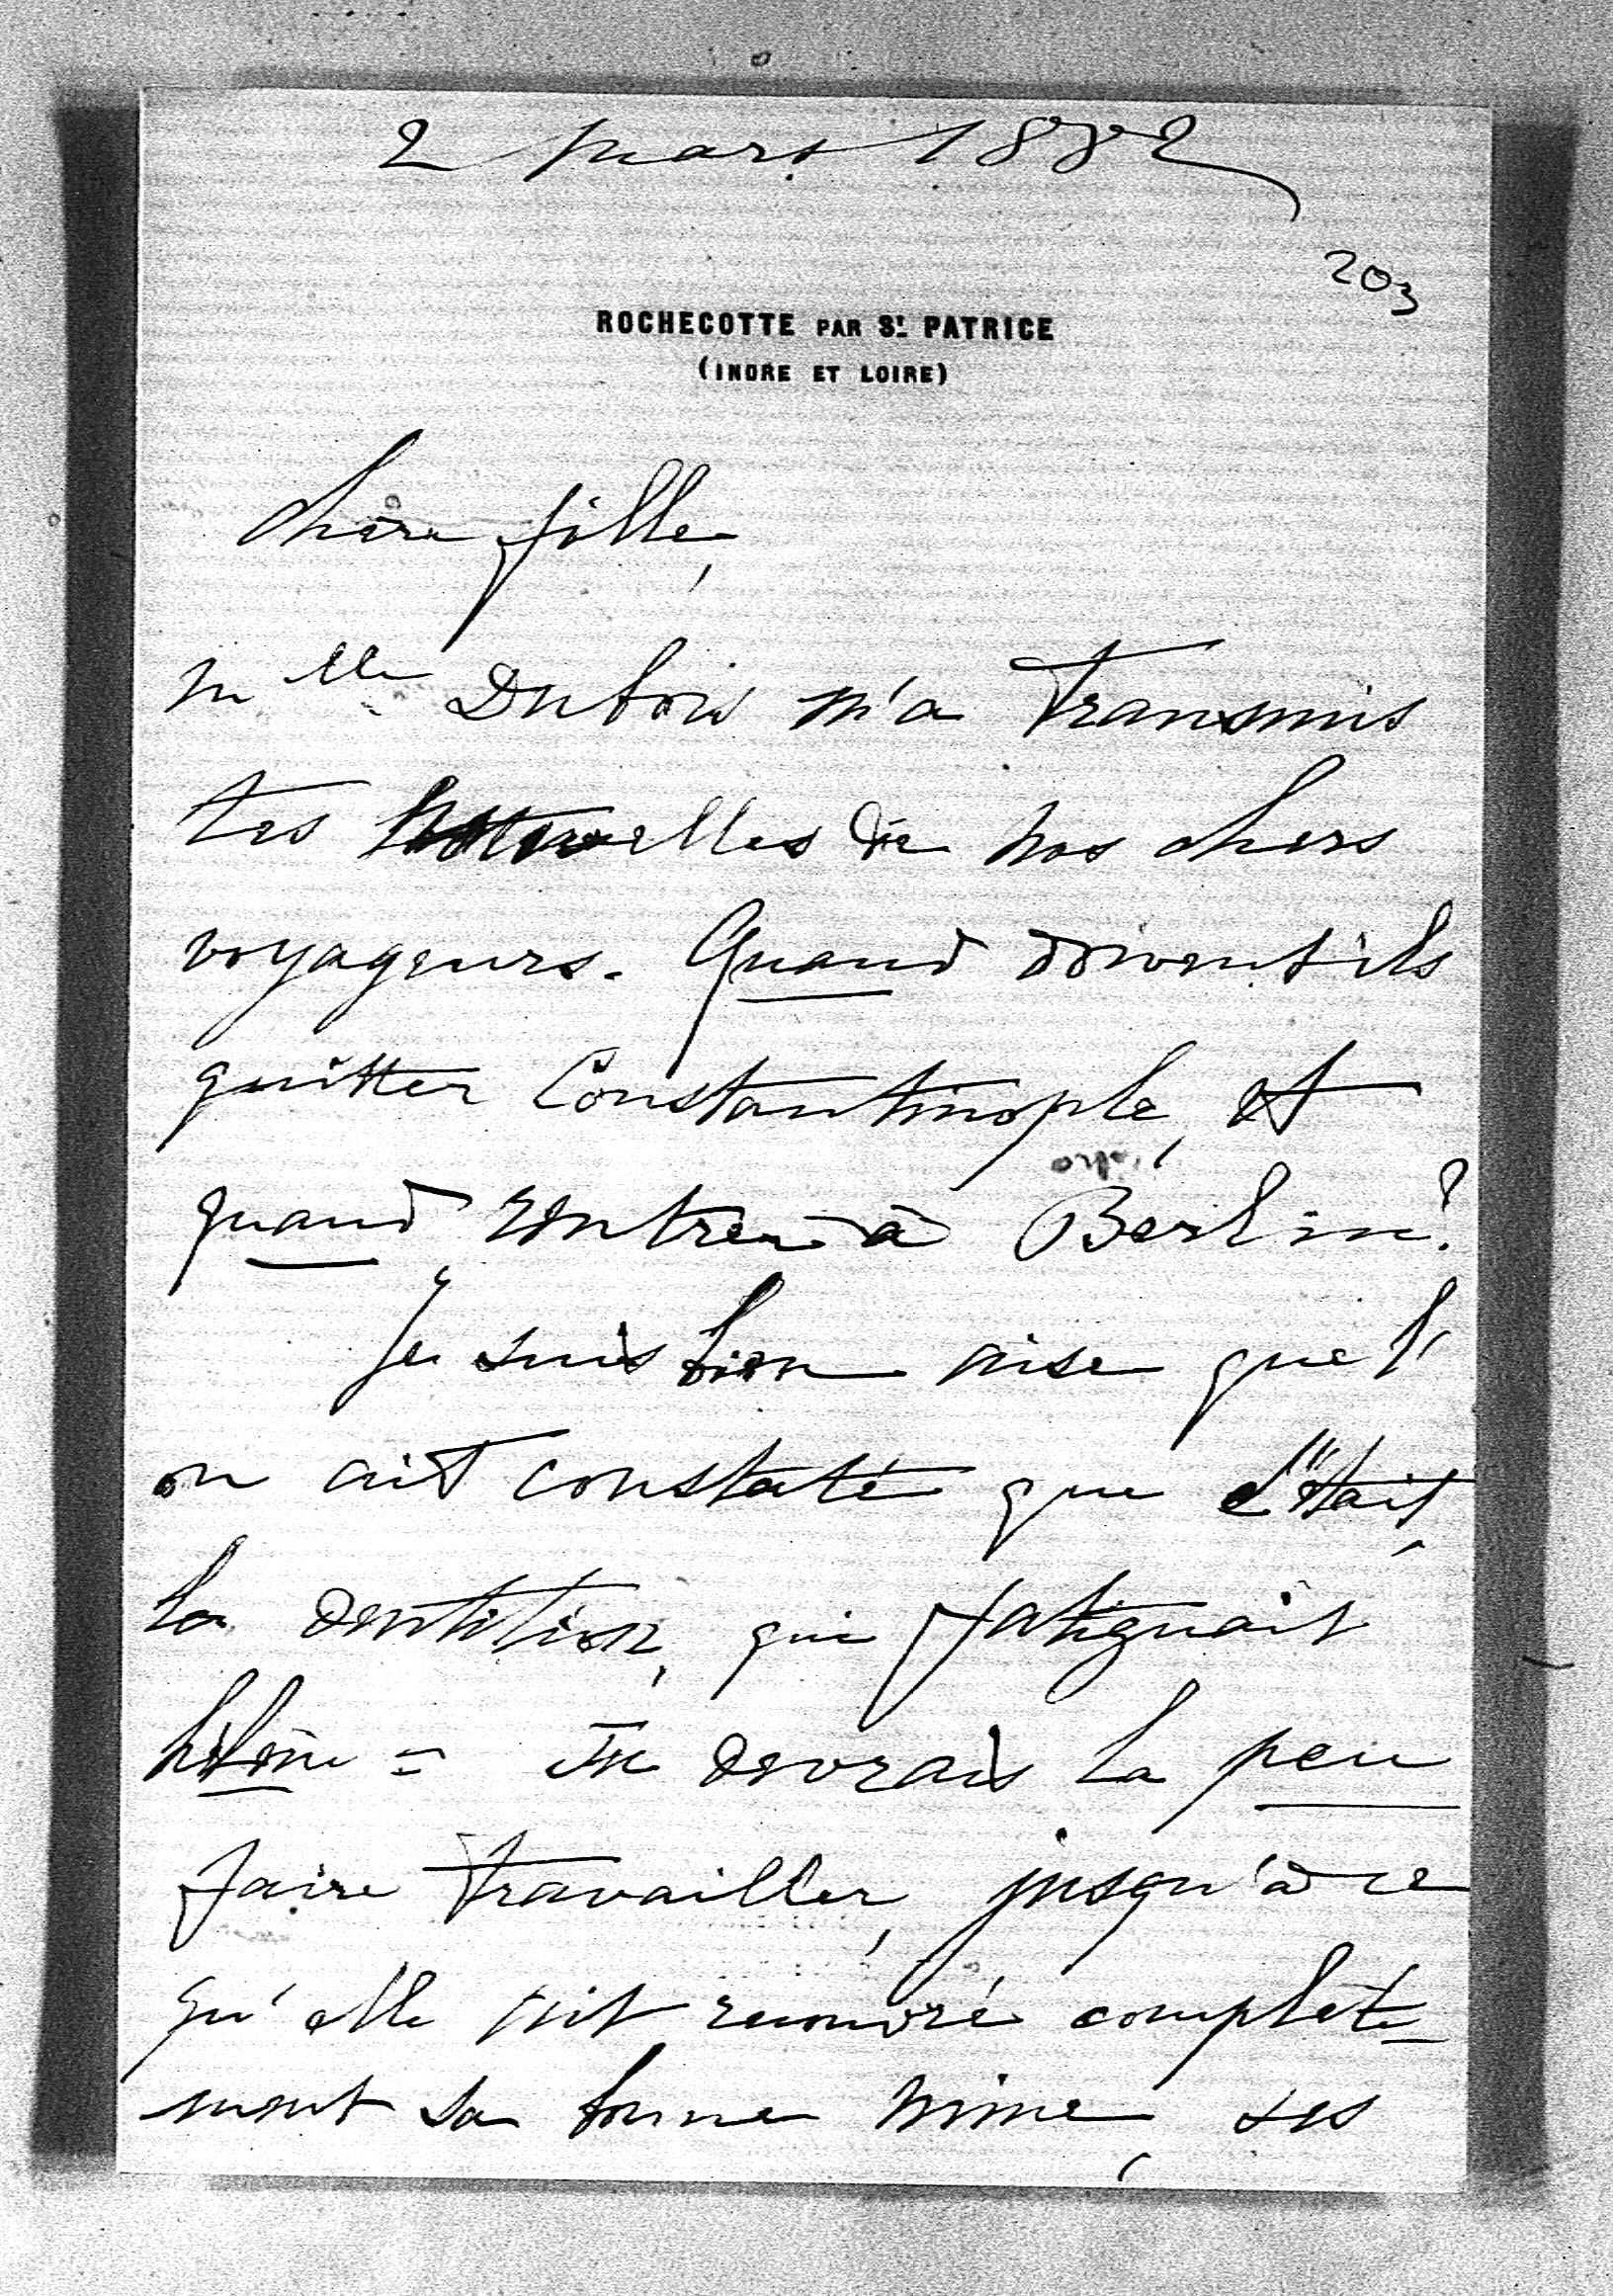 2 mars 1882
203
ROCHECOTTE PAR St. PATRICE
(INDRE ET LOIRE)
chère fille,
Mlle Dubois m'a transmis
tes nouvelles de nos chers
voyageurs. Quand doivent ils
quitter Constantinople, et
quand rentrer à Berlin?
Je suis bien aise que l'
on ait constaté que c'était
la dentition, qui fatiguait
hélène = Tu devrais la peu
faire travailler, jusqu'à ce
qu'elle ait recouvré complète
ment sa bonne mine, ses